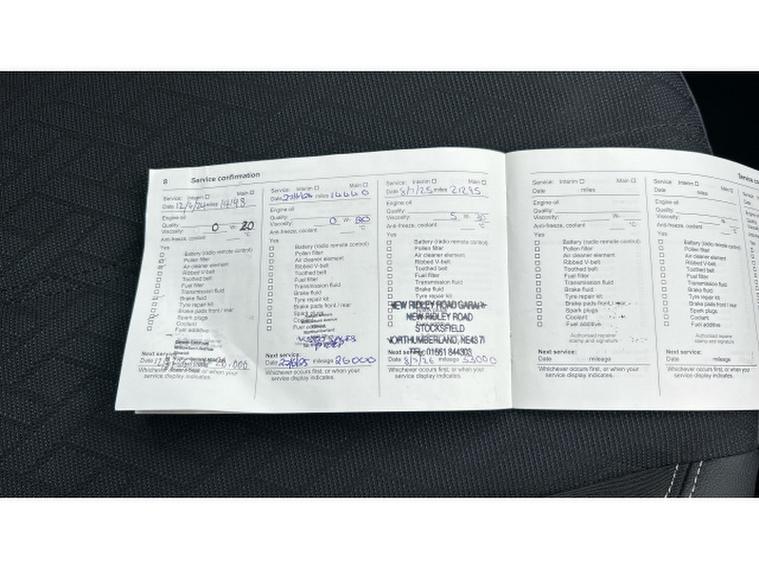 8 Service confirmation
Service: Interim ☐ Main ☐
Date 12/4/24 miles 14148
Engine oil
Quality:
Viscosity: 0 W- 20
Anti-freeze, coolant °C
Yes
☐ Battery (radio remote control)
☐ Pollen filter
☐ Air cleaner element
☐ Ribbed V-belt
☐ Toothed belt
☐ Fuel filter
☐ Transmission fluid
☐ Brake fluid
☐ Tyre repair kit
☐ Brake pads front / rear
☐ Spark plugs
☐ Coolant
☐ Fuel additive
Next service:
20,000
Whichever occurs first, or when your
service display indicates.
Service: Interim ☐ Main ☐
Date miles 14440
Engine oil
Quality:
Viscosity: 0 W-
Anti-freeze, coolant °C
Yes
☐ Battery (radio remote control)
☐ Pollen filter
☐ Air cleaner element
☐ Ribbed V-belt
☐ Toothed belt
☐ Fuel filter
☐ Transmission fluid
☐ Brake fluid
☐ Tyre repair kit
☐ Brake pads front / rear
☐ Spark plugs
☐ Coolant
☐ Fuel additive
Next service:
Date mileage 26000
Whichever occurs first, or when your
service display indicates.
Service: Interim ☐ Main ☐
Date 8/1/25 miles 21295
Engine oil
Quality:
Viscosity: 5 W- 30
Anti-freeze, coolant °C
Yes
☐ Battery (radio remote control)
☐ Pollen filter
☐ Air cleaner element
☐ Ribbed V-belt
☐ Toothed belt
☐ Fuel filter
☐ Transmission fluid
☐ Brake fluid
☐ Tyre repair kit
NEW RIDLEY ROAD GARAGE
NEW RIDLEY ROAD
STOCKSFIELD
NORTHUMBERLAND, NE43 7
TEL: 01661 844303
Next service:
Date 8/1/26 mileage 33000
Whichever occurs first, or when your
service display indicates.
Service: Interim ☐ Main ☐
Date miles
Engine oil
Quality:
Viscosity: W-
Anti-freeze, coolant °C
Yes
☐ Battery (radio remote control)
☐ Pollen filter
☐ Air cleaner element
☐ Ribbed V-belt
☐ Toothed belt
☐ Fuel filter
☐ Transmission fluid
☐ Brake fluid
☐ Tyre repair kit
☐ Brake pads front / rear
☐ Spark plugs
☐ Coolant
☐ Fuel additive
Authorised repairer
stamp and signature
Next service:
Date mileage
Whichever occurs first, or when your
service display indicates.
Service co
Service: Interim ☐ Main ☐
Date miles
Engine oil
Quality:
Viscosity: W-
Anti-freeze, coolant °C
Yes
☐ Battery (radio remote control)
☐ Pollen filter
☐ Air cleaner element
☐ Ribbed V-belt
☐ Toothed belt
☐ Fuel filter
☐ Transmission fluid
☐ Brake fluid
☐ Tyre repair kit
☐ Brake pads front / rear
☐ Spark plugs
☐ Coolant
☐ Fuel additive
Authorised repairer
stamp and signature
Next service:
Date mileage
Whichever occurs first, or when your
service display indicates.